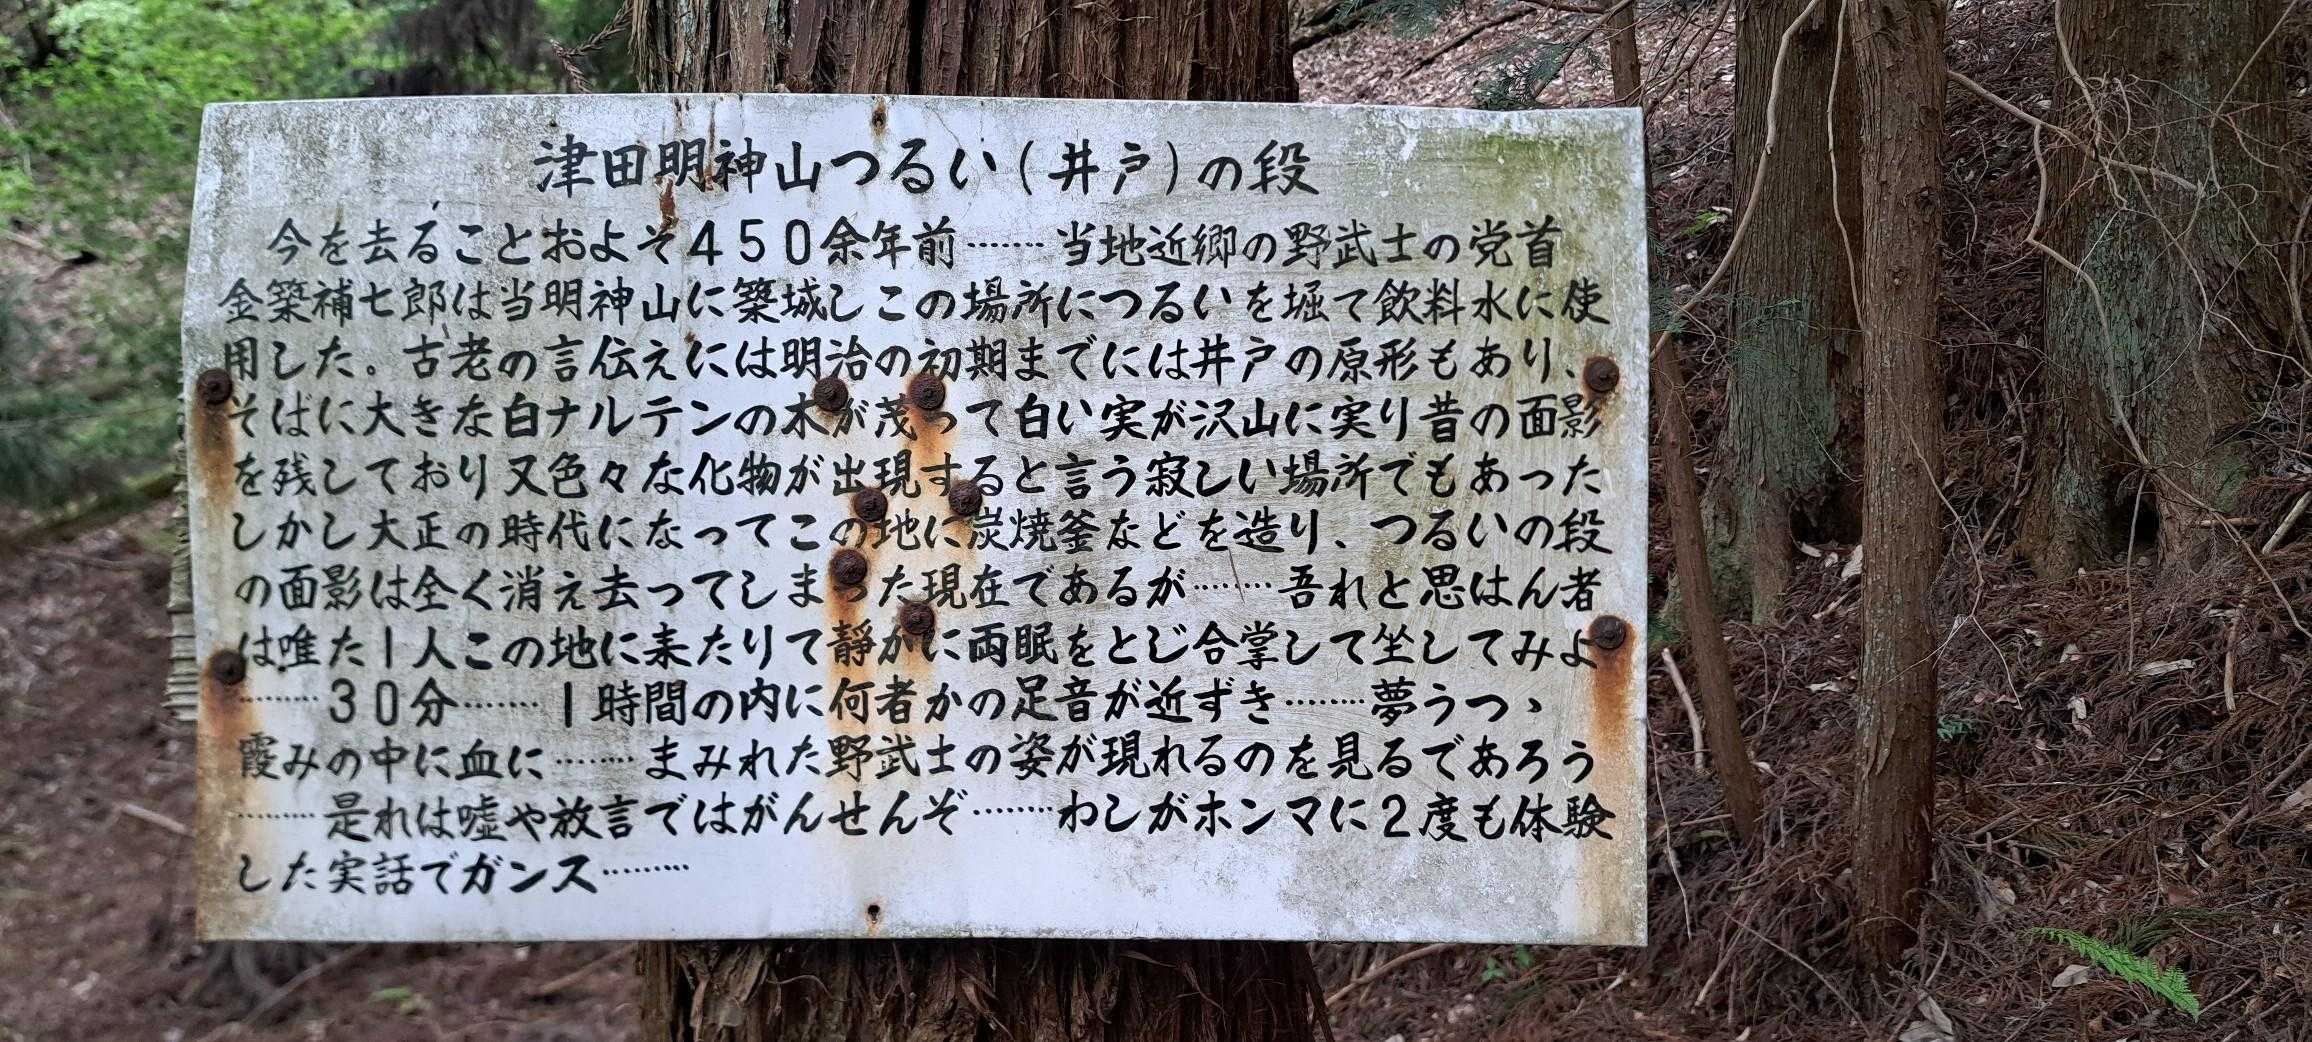 津田明神山つるい(井戸)の段
今を去ることおよそ450余年前……当地近郷の野武士の党首
金築補七郎は当明神山に築城しこの場所につるいを堀て飲料水に使
用した。古老の言伝えには明治の初期までには井戸の原形もあり、
そばに大きな白ナルテンの木が茂って白い実が沢山に実り昔の面影
を残しており又色々な化物が出現すると言う寂しい場所でもあった
しかし大正の時代になってこの地に炭焼釜などを造り、つるいの段
の面影は全く消え去ってしまった現在であるが……吾れと思はん者
は唯た1人この地に来たりて静かに両眠をとじ合掌して坐してみよ
……30分……1時間の内に何者かの足音が近ずき……夢うつゝ
霞みの中に血に……まみれた野武士の姿が現れるのを見るであろう
……是れは嘘や放言ではがんせんぞ……わしがホンマに2度も体験
した実話でガンス………